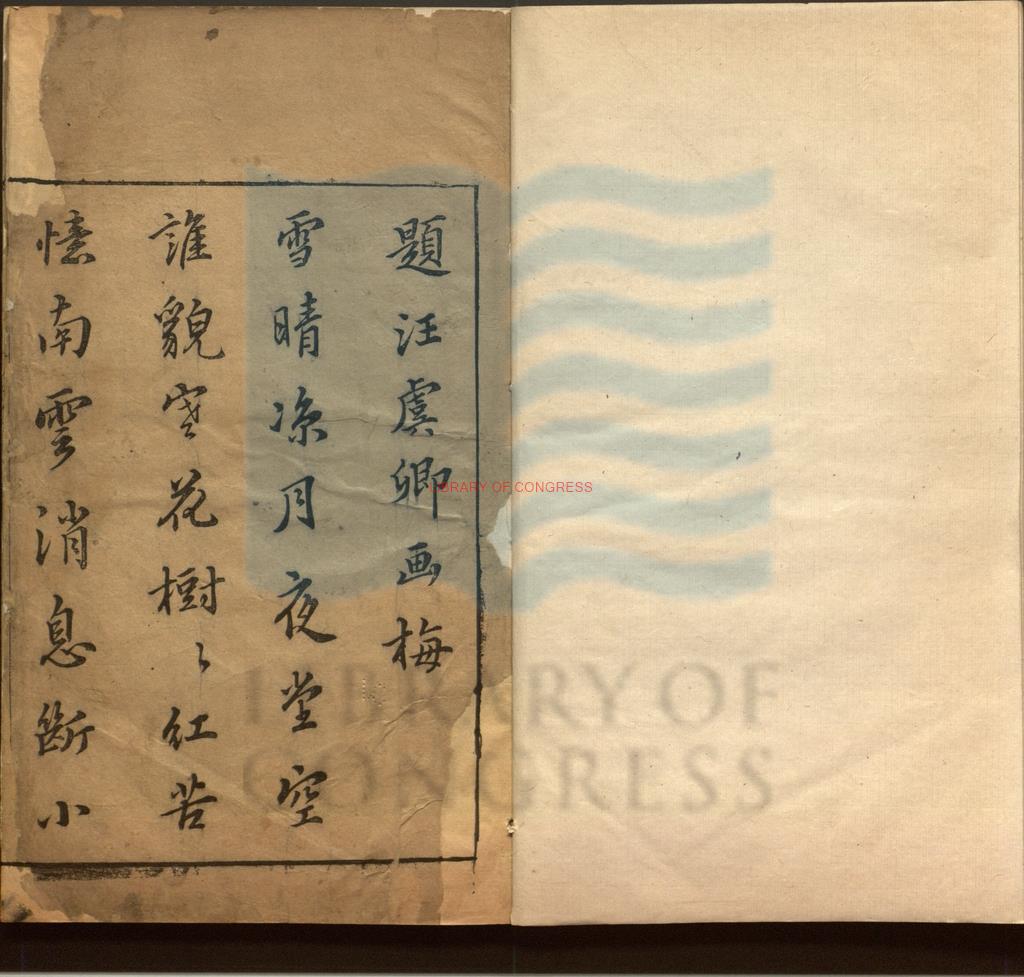 題汪虞卿画梅
雪晴凉月夜堂空
誰貌寒花樹〻紅苦
憶南雲消息斷小
LIBRARY OF CONGRESS
LIBRARY OF
CONGRESS